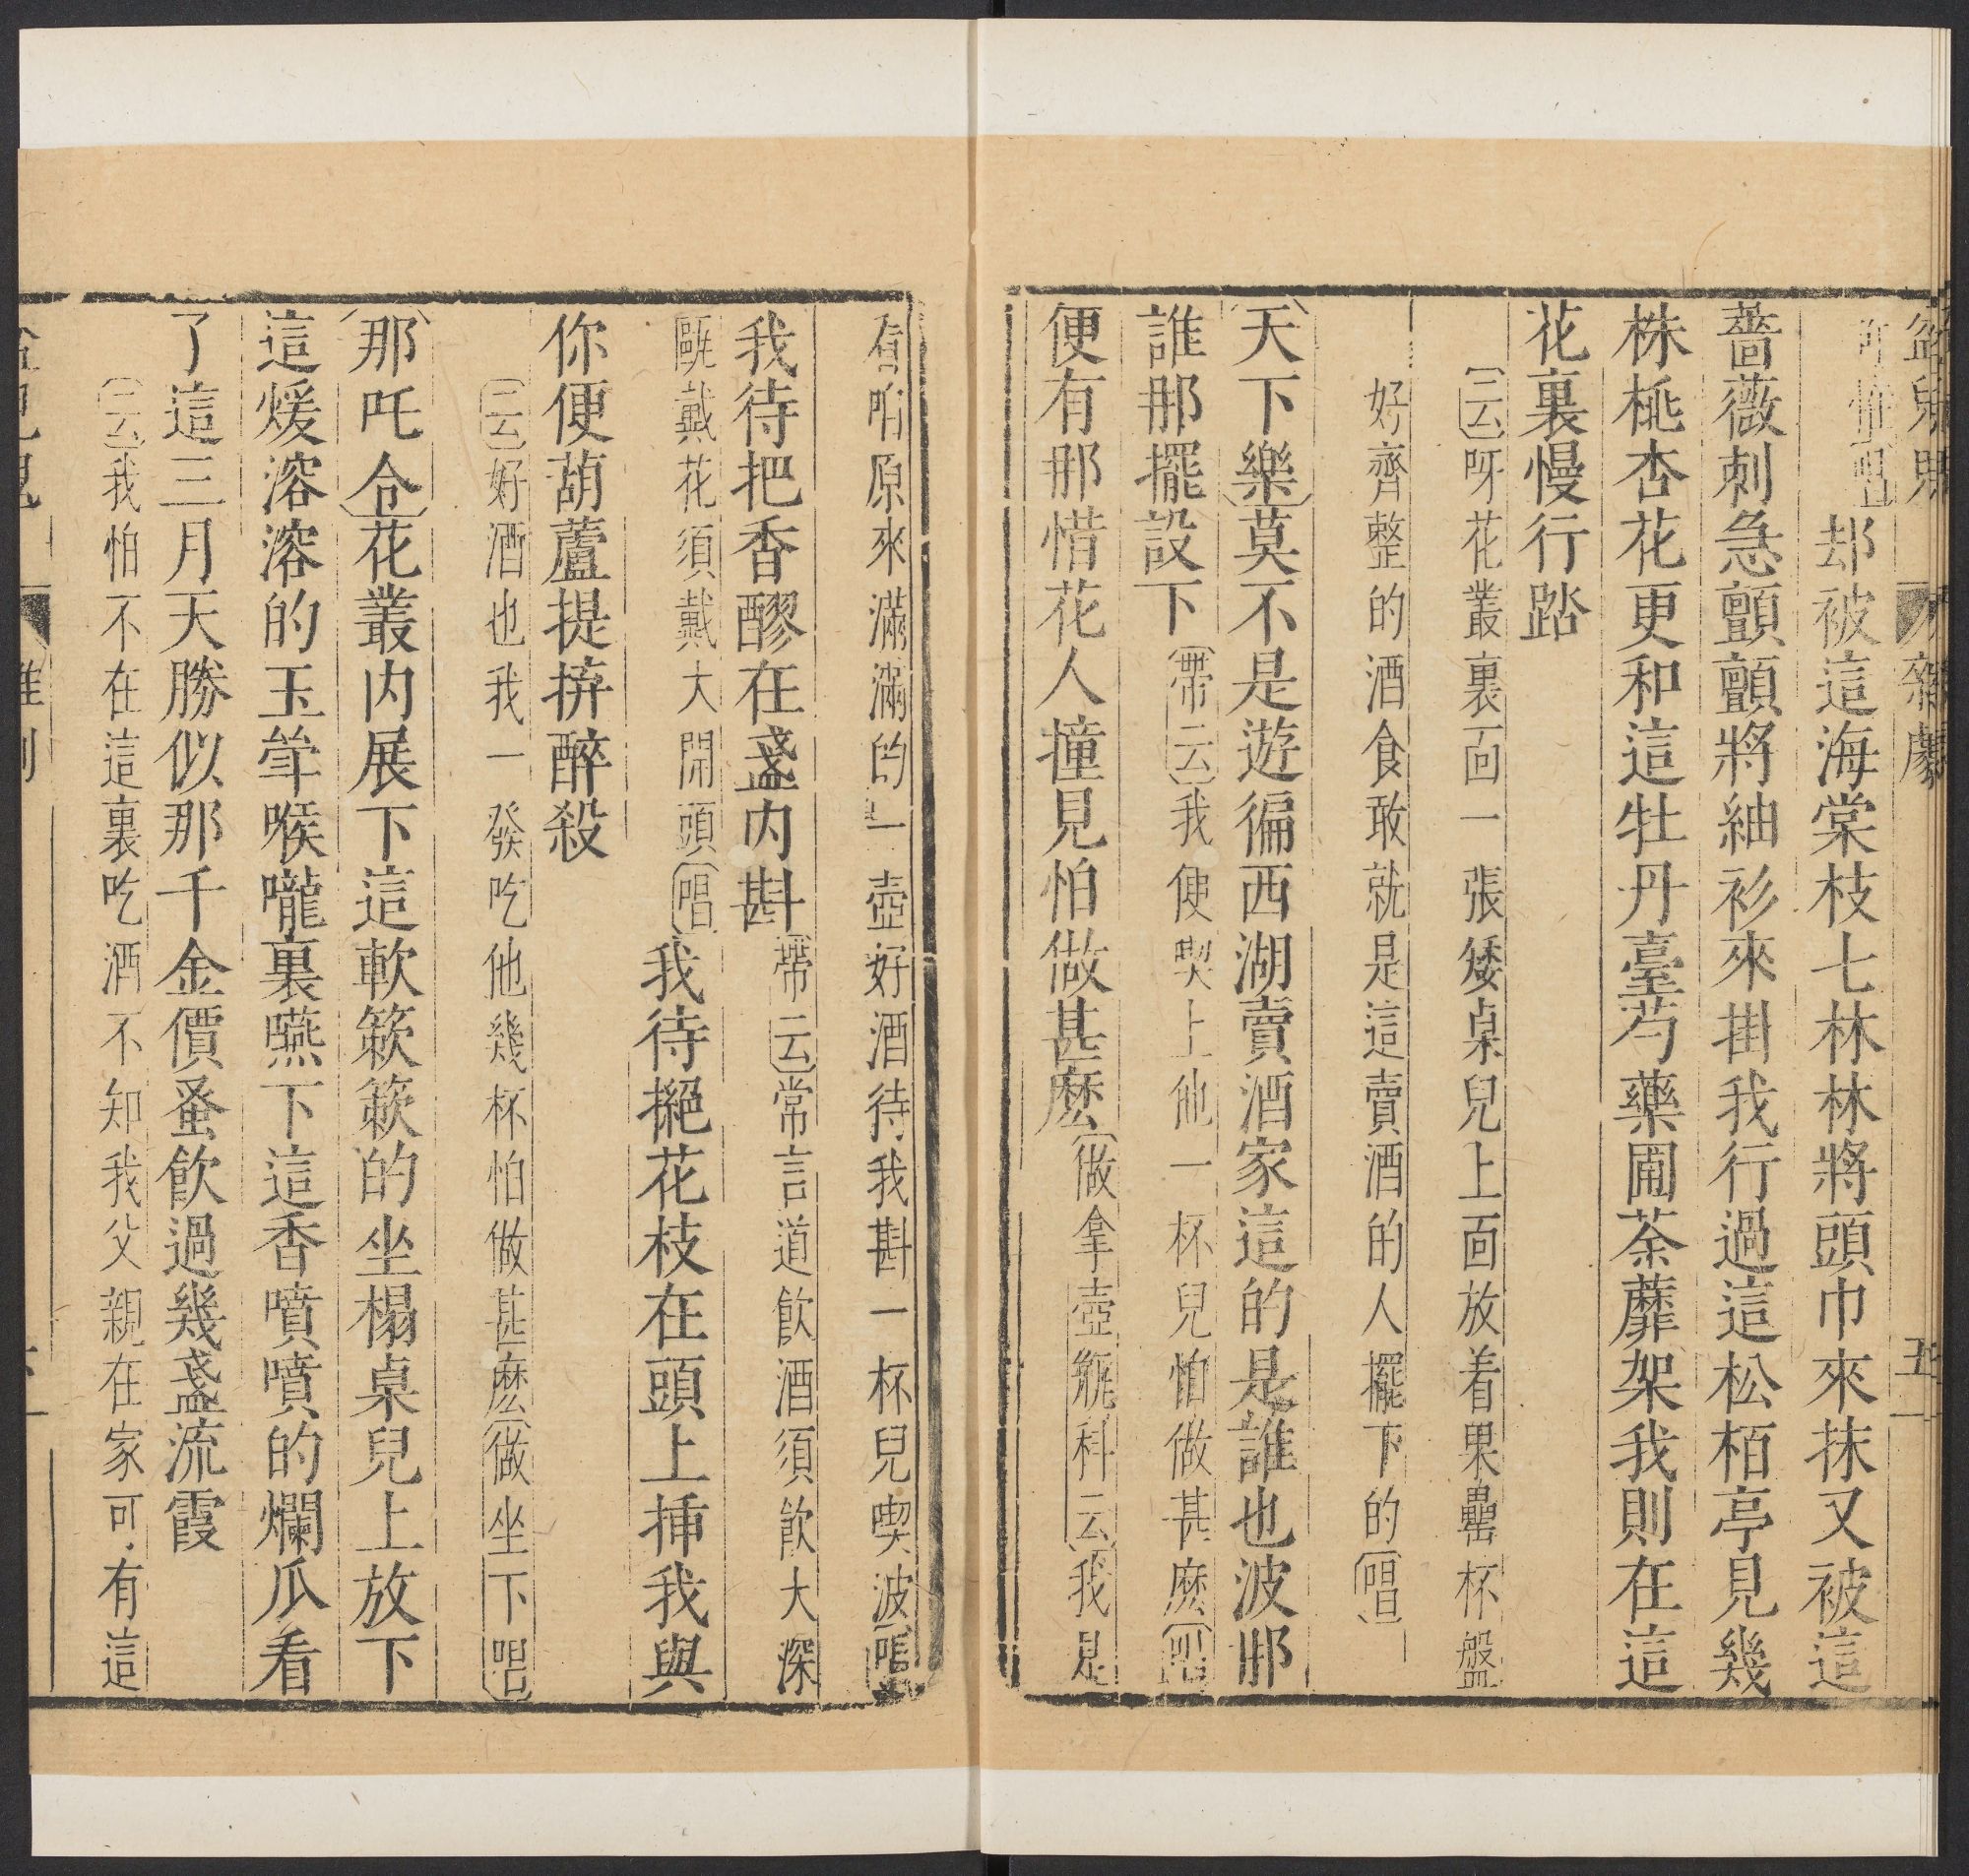 盆兒鬼 雜劇 五
唱 却被這海棠枝七林林將頭巾來抹又被這
薔薇刺急顫顫將紬衫來掛我行過這松栢亭見幾
株桃杏花更和這牡丹臺芍藥圃荼蘼架我則在這
花裏慢行踏
云呀花叢裏面一張矮桌兒上面放着果罍杯盤
好齊整的酒食敢就是這賣酒的人擺下的唱
天下樂莫不是遊徧西湖賣酒家這的是誰也波那
誰那擺設下帶云我便喫上他一杯兒怕做甚麽唱
便有那惜花人撞見怕做甚麽做拿壺甁科云我是
看咱原來滿滿的一壺好酒待我斟一杯兒喫波唱
我待把香醪在盞內斟帶云常言道飲酒須飲大深
甌戴花須戴大開頭唱我待撧花枝在頭上揷我與
你便葫蘆提𢬵醉殺
云好酒也我一發吃他幾杯怕做甚麽做坐下唱
那吒令花叢內展下這軟簌簌的坐榻桌兒上放下
這煖溶溶的玉斝喉嚨裏嚥下這香噴噴的爛瓜看
了這三月天勝似那千金價蚤飲過幾盞流霞
云我怕不在這裏吃酒不知我父親在家可有這